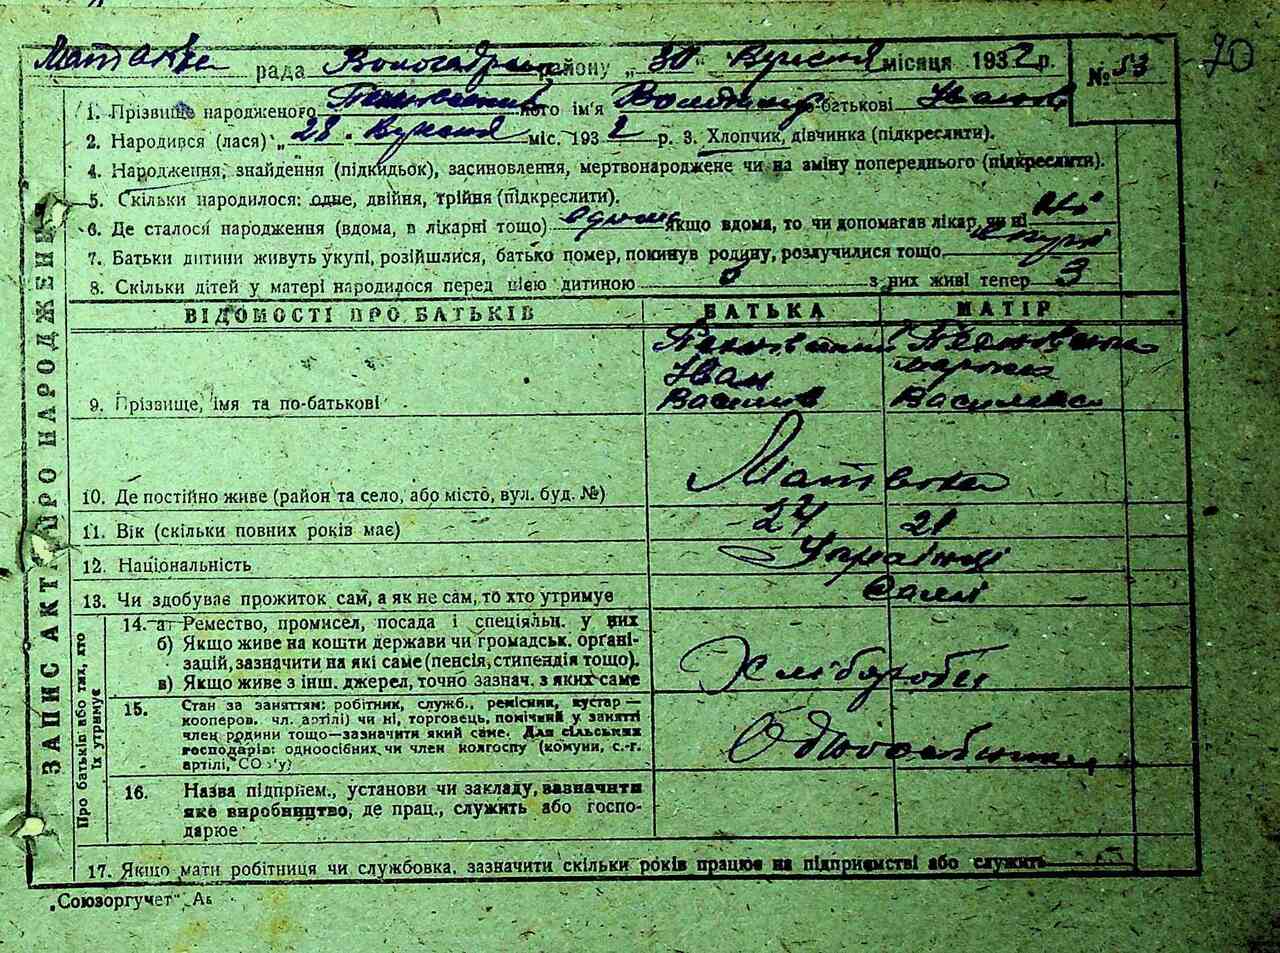 рада району „ 30 " Вересня місяця 1932 р.
№ 53
70
1. Прізвище народженого його ім'я Володимир по батькові Іванов
2. Народився (лася) „ 28 " Вересня міс. 1932 р. 3. Хлопчик, дівчинка (підкреслити).
4. Народження, знайдення (підкидьок), засиновлення, мертвонароджене чи на зміну попереднього (підкреслити).
5. Скільки народилося: одне, двійня, трійня (підкреслити).
6. Де сталося народження (вдома, в лікарні тощо) вдома якщо вдома, то чи допомагав лікар, чи ні ні
7. Батьки дитини живуть укупі, розійшлися, батько помер, покинув родину, розлучилися тощо вкупі
8. Скільки дітей у матері народилося перед цією дитиною з них живі тепер 3
ВІДОМОСТІ ПРО БАТЬКІВ БАТЬКА МАТІР
Іван
9. Прізвище, імя та по-батькові Василів Василівна
10. Де постійно живе (район та село, або місто, вул. буд. №)
11. Вік (скільки повних років має) 24 21
12. Національність Українці
13. Чи здобуває прожиток сам, а як не сам, то хто утримує Самі –
14. а) Ремество, промисел, посада і спеціяльн. у них
б) Якщо живе на кошти держави чи громадськ. органі-
зацій, зазначити на які саме (пенсія, стипендія тощо).
в) Якщо живе з інш. джерел, точно зазнач. з яких саме Хлібороби
15. Стан за заняттям: робітник, служб., ремісник, кустар —
кооперов. чл. артілі) чи ні, торговець, помічний у занятті
член родини тощо—зазначити який саме. Для сільських
господарів: одноосібних чи член колгоспу (комуни, с.-г.
артілі, СОЗ'у) Одноосібники
16. Назва підприєм., установи чи закладу, зазначити
яке виробництво, де прац., служить або госпо-
дарює
17. Якщо мати робітниця чи службовка, зазначити скільки років працює на підприємстві або служить
ЗАПИС АКТ ПРО НАРОДЖЕННЯ
Про батьків або тих, хто
їх утримує
„Союзоргучет"